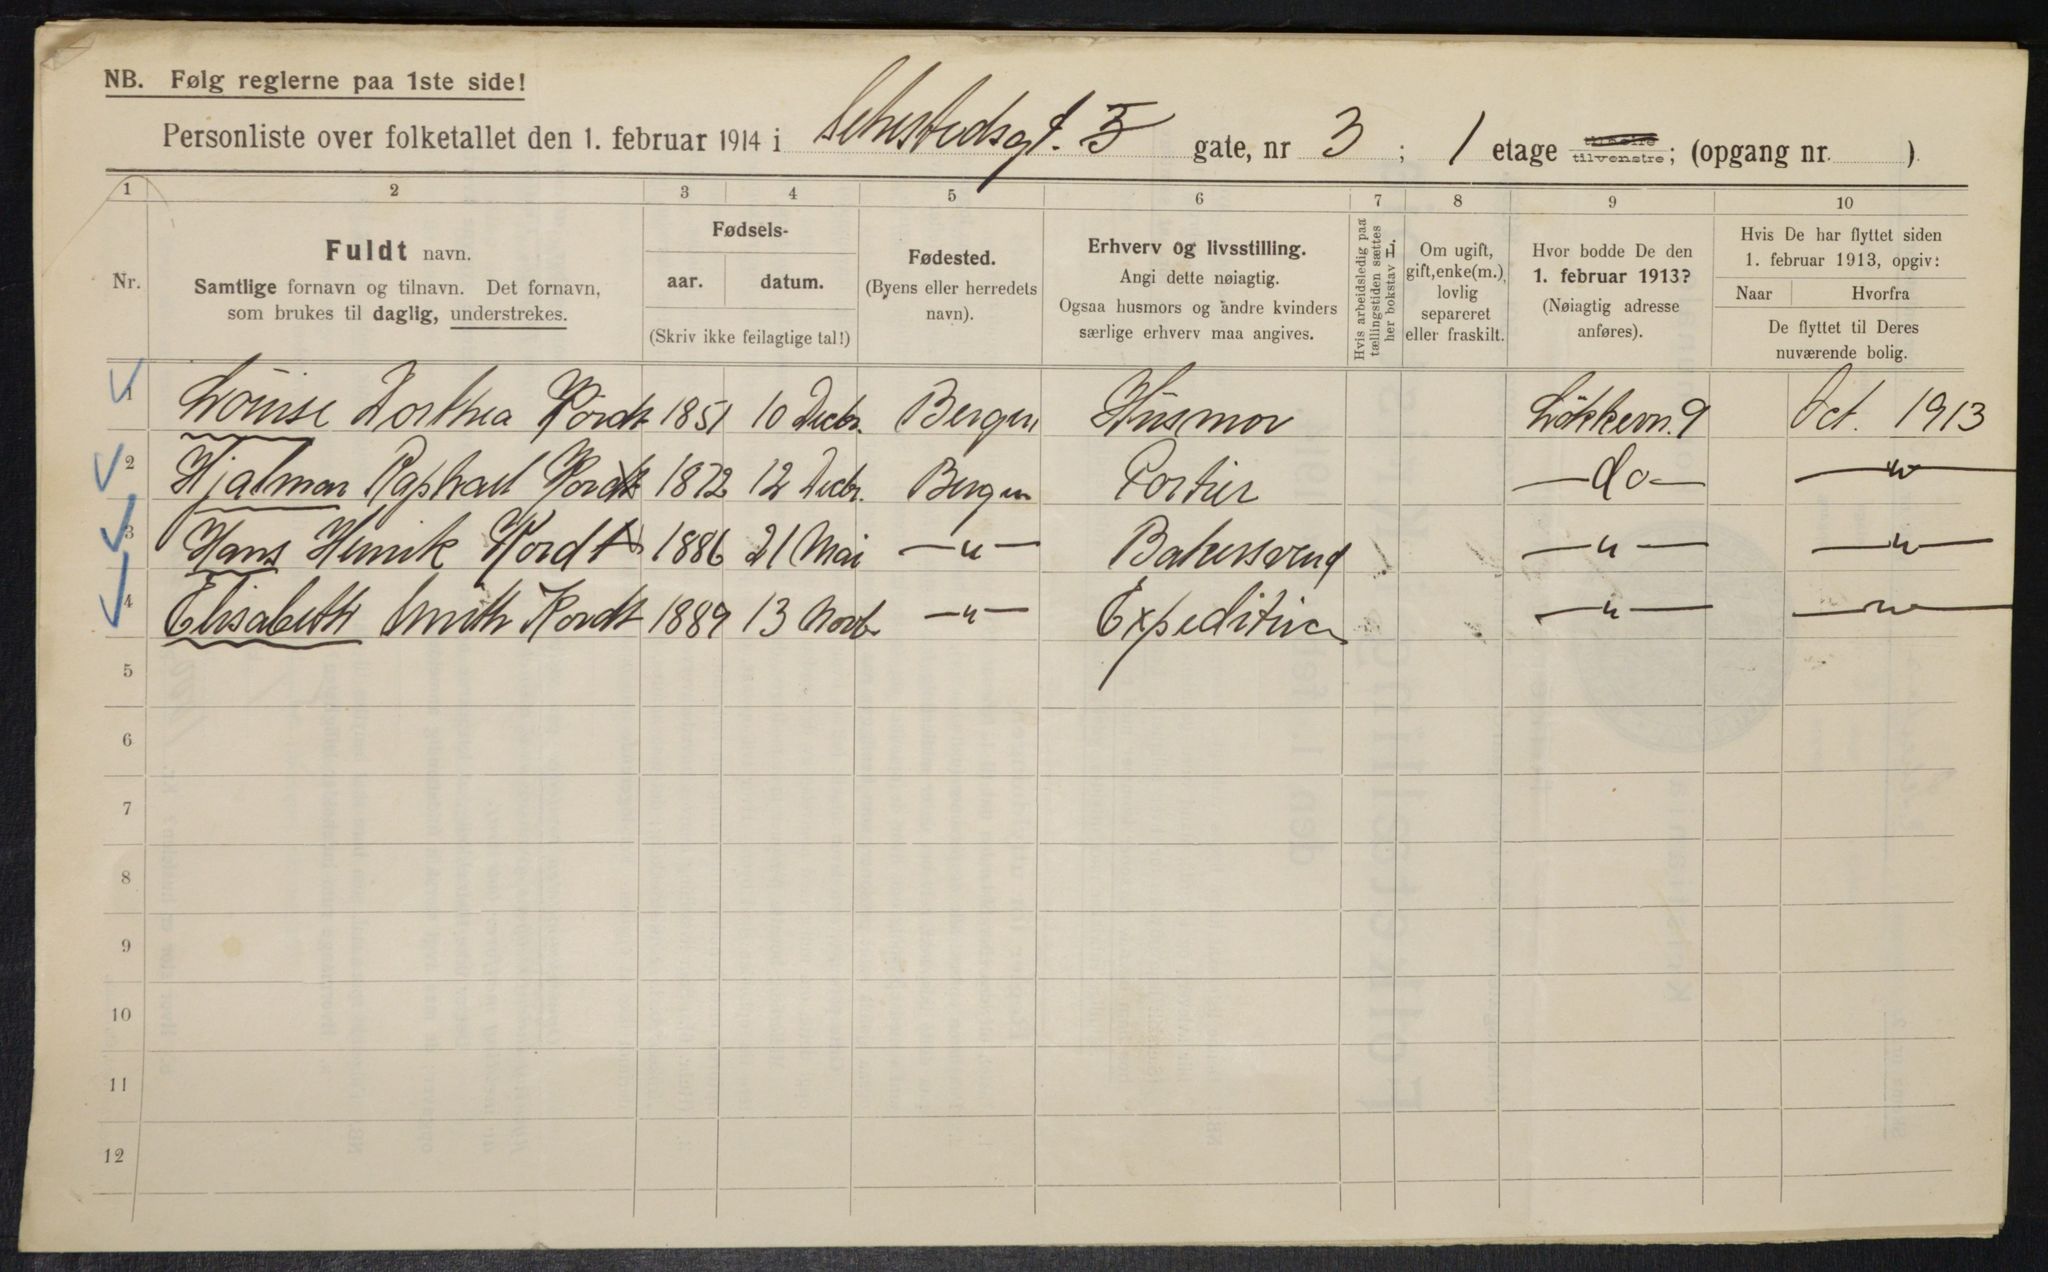 NB. Følg reglerne paa 1ste side!
Personliste over folketallet den 1. februar 1914 i Sehestedsgt. 3 gate, nr 3 ; 1 etage tilhøire tilvenstre; (opgang nr. )
1 2 3 4 5 6 7 8 9 10
Nr.
Fuldt navn.
Samtlige fornavn og tilnavn. Det fornavn,
som brukes til daglig, understrekes.
Fødsels-
aar. datum.
(Skriv ikke feilagtige tal!)
Fødested.
(Byens eller herredets
navn).
Erhverv og livsstilling.
Angi dette nøiagtig.
Ogsaa husmors og andre kvinders
særlige erhverv maa angives.
Hvis arbeidsledig paa
tællingstiden sættes
her bokstav L.
Om ugift,
gift, enke(m.),
lovlig
separeret
eller fraskilt.
Hvor bodde De den
1. februar 1913?
(Nøiagtig adresse
anføres).
Hvis De har flyttet siden
1. februar 1913, opgiv:
Naar Hvorfra
De flyttet til Deres
nuværende bolig.
1 Louise Dorthea Kordt 1851 10 Decbr. Bergen Husmor Løkkevn. 9 Oct. 1913
2 Hjalmar Raphael Kordt 1872 12 Decbr. Bergen Portier —do— —"—
3 Hans Henrik Kordt 1886 21 Mai —"— Bakersvend —"— —"—
4 Elisabeth Smith Kordt 1889 13 Novb. —"— Expeditrice —"— —"—
5
6
7
8
9
10
11
12